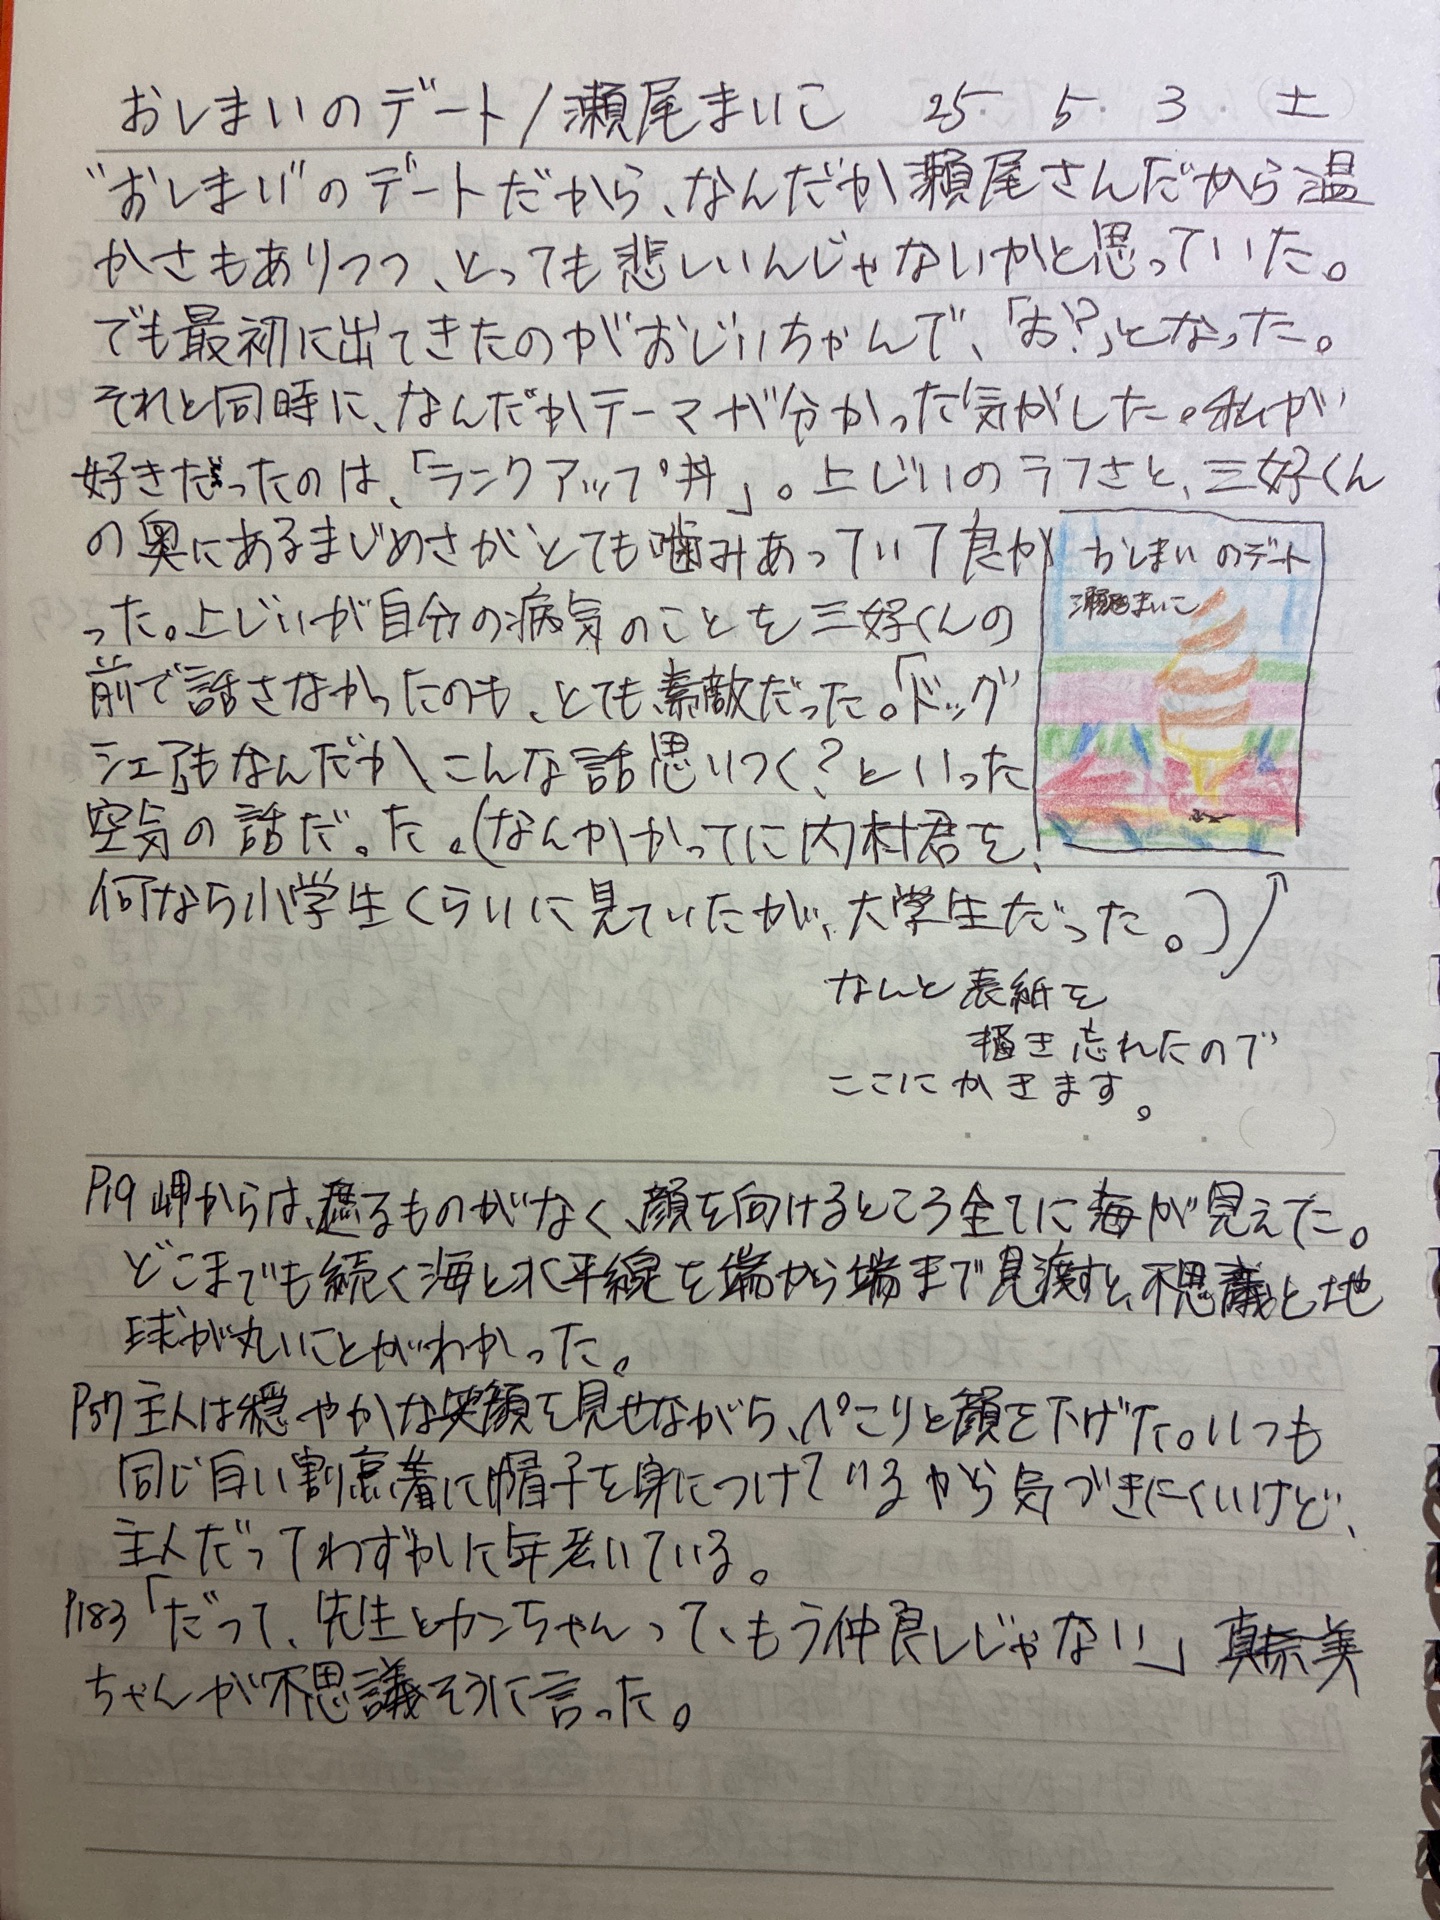 おしまいのデート/瀬尾まいこ 25. 5. 3 土
"おしまい"のデートだから、なんだか瀬尾さんだから温
かさもありつつ、とっても悲しいんじゃないかと思っていた。
でも最初に出てきたのがおじいちゃんで、「お?」となった。
それと同時に、なんだかテーマが分かった気がした。私が
好きだったのは、「ランクアップ丼」。上じいのラフさと、三好くん
の奥にあるまじめさがとても噛みあっていて良か
った。上じいが自分の病気のことを三好くんの
前で話さなかったのも、とても素敵だった。「ドッグ
シェア」もなんだか、こんな話思いつく?といった
空気の話だった。(なんかかってに内村君を、
何なら小学生くらいに見ていたが、大学生だった。)
おしまいのデート
瀬尾まいこ
なんと表紙を
描き忘れたので
ここにかきます。
P19 岬からは、遮るものがなく、顔を向けるところ全てに海が見えた。
どこまでも続く海と水平線を端から端まで見渡すと、不思議と地
球が丸いことがわかった。
P57 主人は穏やかな笑顔を見せながら、ぺこりと顔を下げた。いつも
同じ白い割烹着に帽子を身につけているから気づきにくいけど、
主人だってわずかに年老いている。
P183「だって、先生とカンちゃんって、もう仲良しじゃない」真奈美
ちゃんが不思議そうに言った。